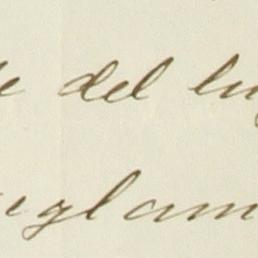 de del lu
eglam